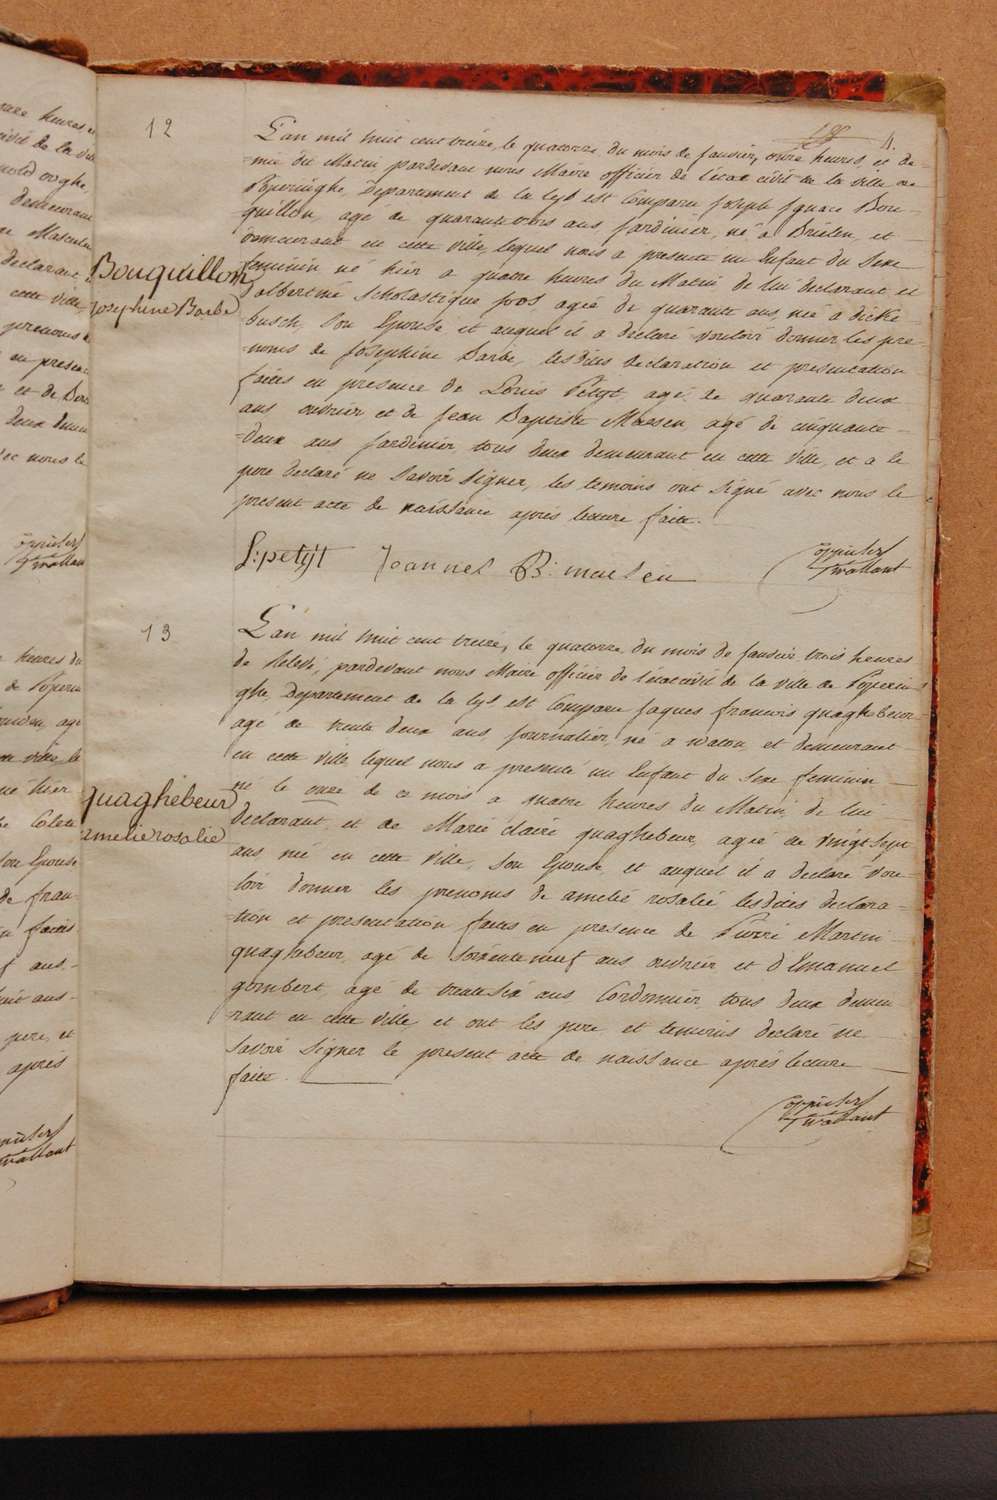 12
L'an mil huit cent treize, le quatorze du mois de Janvier, onze heures et de-
-mie du Matin pardevant nous Maire officier de l'etat civil de la ville de
Poperinghe, Departement de la Lys est Comparu Joseph Ignace Bou-
quillon, agé de quarante trois ans Jardinier, né a Brielen, et
demeurant en cette ville, lequel nous a presenté un Enfant du Sexe
feminin né hier a quatre heures du Matin de lui declarant et
d'albertine Scholastique fos, agée de quarante ans, née a dicke-
busch, Son Epouse et auquel il a declaré vouloir donner les pre-
-noms de Josephine Barbe, lesdites declaration et presentation
faites en presence de Louis Petyt, agé de quarante deux
ans ouvrier et de Jean Baptiste Maesen agé de cinquante-
-deux ans Jardinier, tous deux demeurant en cette Ville, et a le
pere declaré ne Savoir Signer, les temoins ont Signé avec nous le
present acte de naissance après lecture faite.
Bouquillon
Josephine Barbe
L: petijt Joannes B: maesen
13
L'an mil huit cent treize, le quatorze du mois de Janvier trois heures
de relevé, pardevant nous Maire officier de l'état civil de la ville de Poperin-
ghe, Departement de la Lys, est Comparu Jaques francois quaghebeur
agé de trente deux ans, Journalier, né a watou et demeurant
en cette ville lequel nous a presenté un Enfant du Sexe feminin
né le onze de ce mois a quatre heures du Matin, de lui
declarant, et de Marie claire quaghebeur, agée de vingt sept
ans née en cette Ville, Son Epouse, et auquel il a declaré vou-
loir donner les prenoms de amelie rosalie lesdites declara-
-tion et presentation faites en presence de Pierre Martin
quaghebeur, agé de soixante neuf ans ouvrier et d'Emanuel
gombert, agé de trente six ans Cordonnier, tous deux demeu
rant en cette Ville et ont les pere et temoins declaré ne
Savoir Signer le present acte de naissance après lecture
faite.
quaghebeur
amelie rosalie